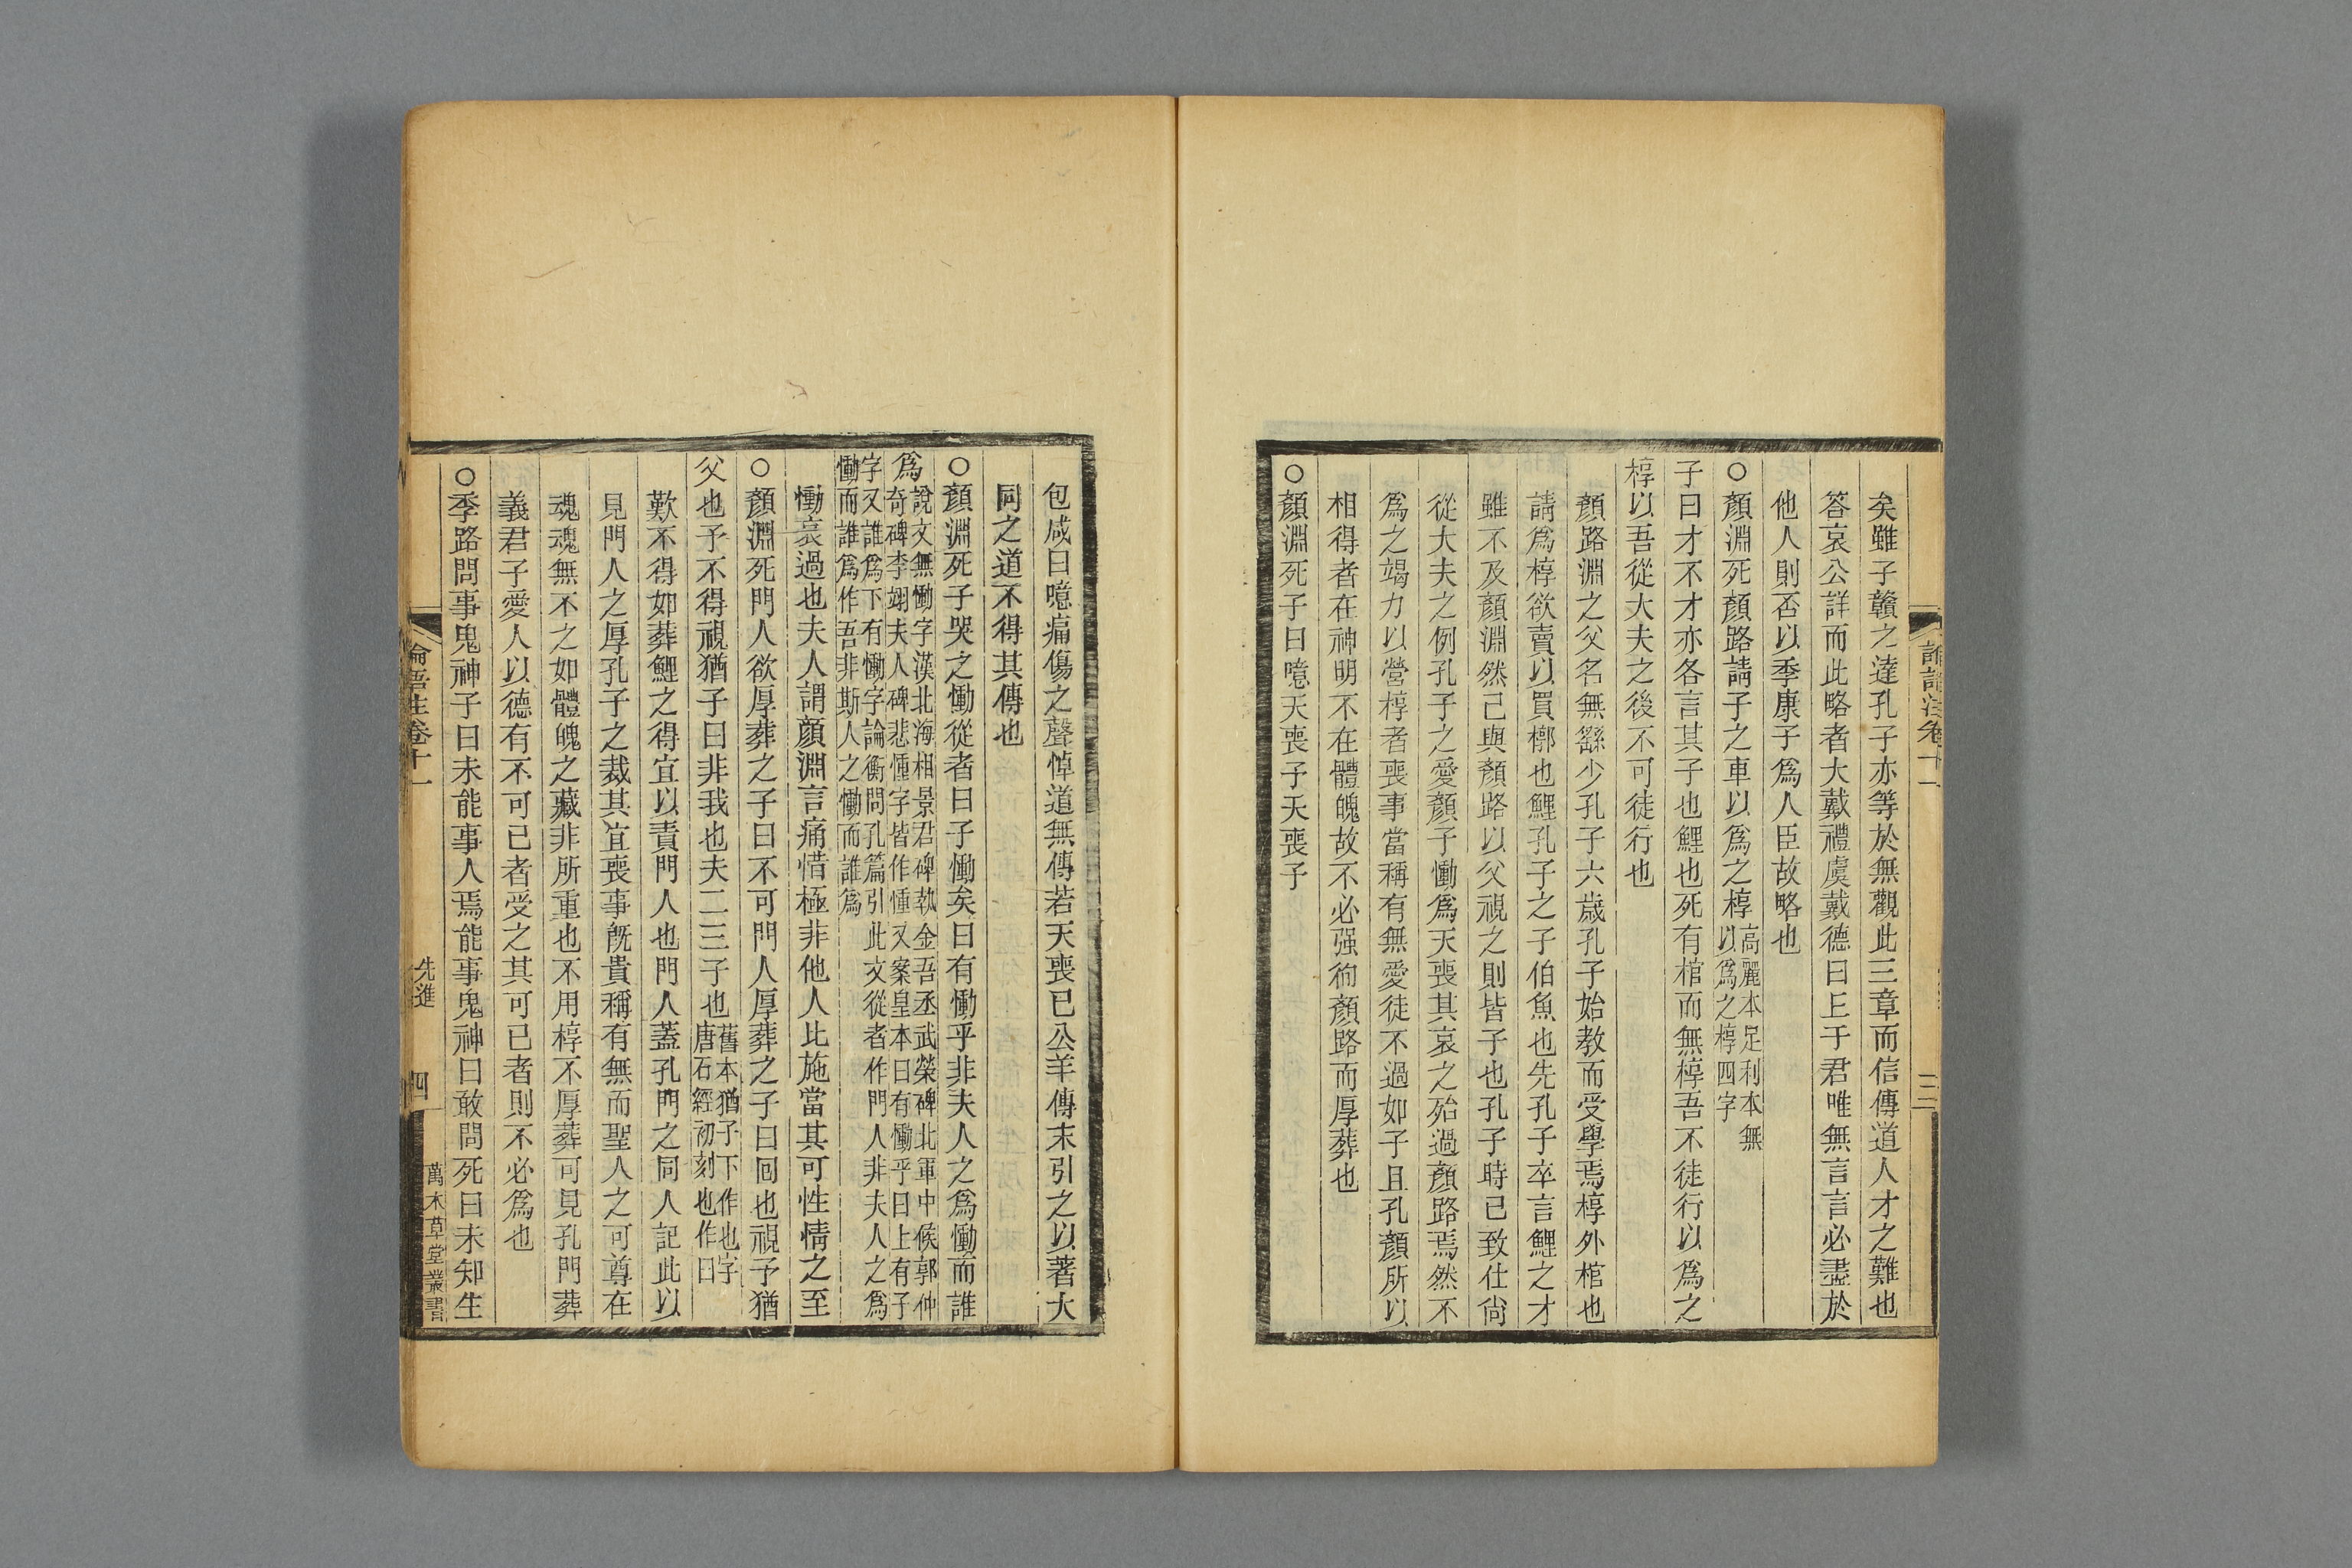 論語注卷十一
三
矣雖子贛之達孔子亦等於無觀此三章而信傳道人才之難也
答哀公詳而此略者大戴禮虞戴德曰丘于君唯無言言必盡於
他人則否以季康子爲人臣故略也
○顏淵死顏路請子之車以爲之椁高麗本足利本無以爲之椁四字
子曰才不才亦各言其子也鯉也死有棺而無椁吾不徒行以爲之
椁以吾從大夫之後不可徒行也
顏路淵之父名無繇少孔子六歲孔子始教而受學焉椁外棺也
請爲椁欲賣以買槨也鯉孔子之子伯魚也先孔子卒言鯉之才
雖不及顏淵然己與顏路以父視之則皆子也孔子時已致仕尙
從大夫之例孔子之愛顏子慟爲天喪其哀之殆過顏路焉然不
爲之竭力以營椁者喪事當稱有無愛徒不過如子且孔顏所以
相得者在神明不在體魄故不必强徇顏路而厚葬也
○顏淵死子曰噫天喪予天喪予
包咸曰噫痛傷之聲悼道無傳若天喪已公羊傳末引之以著大
同之道不得其傳也
○顏淵死子哭之慟從者曰子慟矣曰有慟乎非夫人之爲慟而誰
爲說文無慟字漢北海相景君碑執金吾丞武榮碑北軍中候郭仲
奇碑李翊夫人碑悲懂字皆作懂又案皇本曰有慟乎曰上有子
字又誰爲下有慟字論衡問孔篇引此文從者作門人非夫人之爲
慟而誰爲作吾非斯人之慟而誰爲
慟哀過也夫人謂顏淵言痛惜極非他人比施當其可性情之至
○顏淵死門人欲厚葬之子曰不可門人厚葬之子曰回也視予猶
父也予不得視猶子曰非我也夫二三子也舊本猶子下作也字唐石經初刻也作曰
歎不得如葬鯉之得宜以責門人也門人蓋孔門之同人記此以
見門人之厚孔子之裁其宜喪事旣貴稱有無而聖人之可尊在
魂魂無不之如體魄之藏非所重也不用椁不厚葬可見孔門葬
義君子愛人以德有不可已者受之其可已者則不必爲也
○季路問事鬼神子曰未能事人焉能事鬼神曰敢問死曰未知生
論語注卷十一
先進
四
萬木草堂叢書